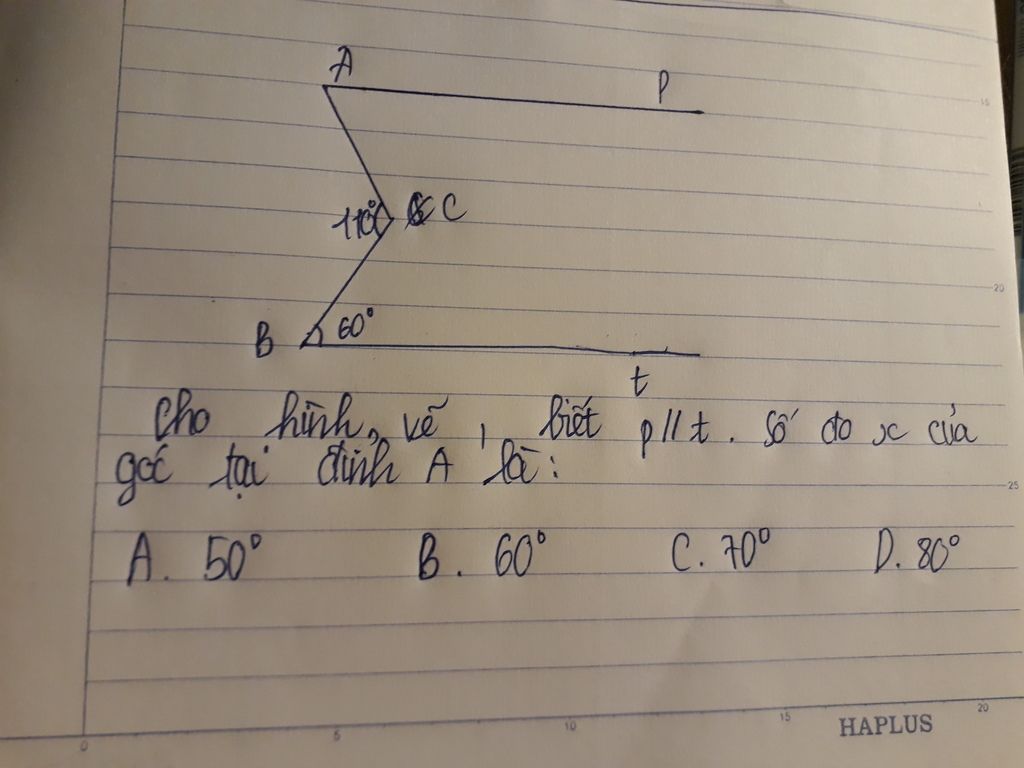 A
P
110° C
B 60°
t
Cho hình vẽ, biết p // t. Số đo x của
góc tại đỉnh A là:
A. 50° B. 60° C. 70° D. 80°
15
20
25
0 5 10 15 20
HAPLUS